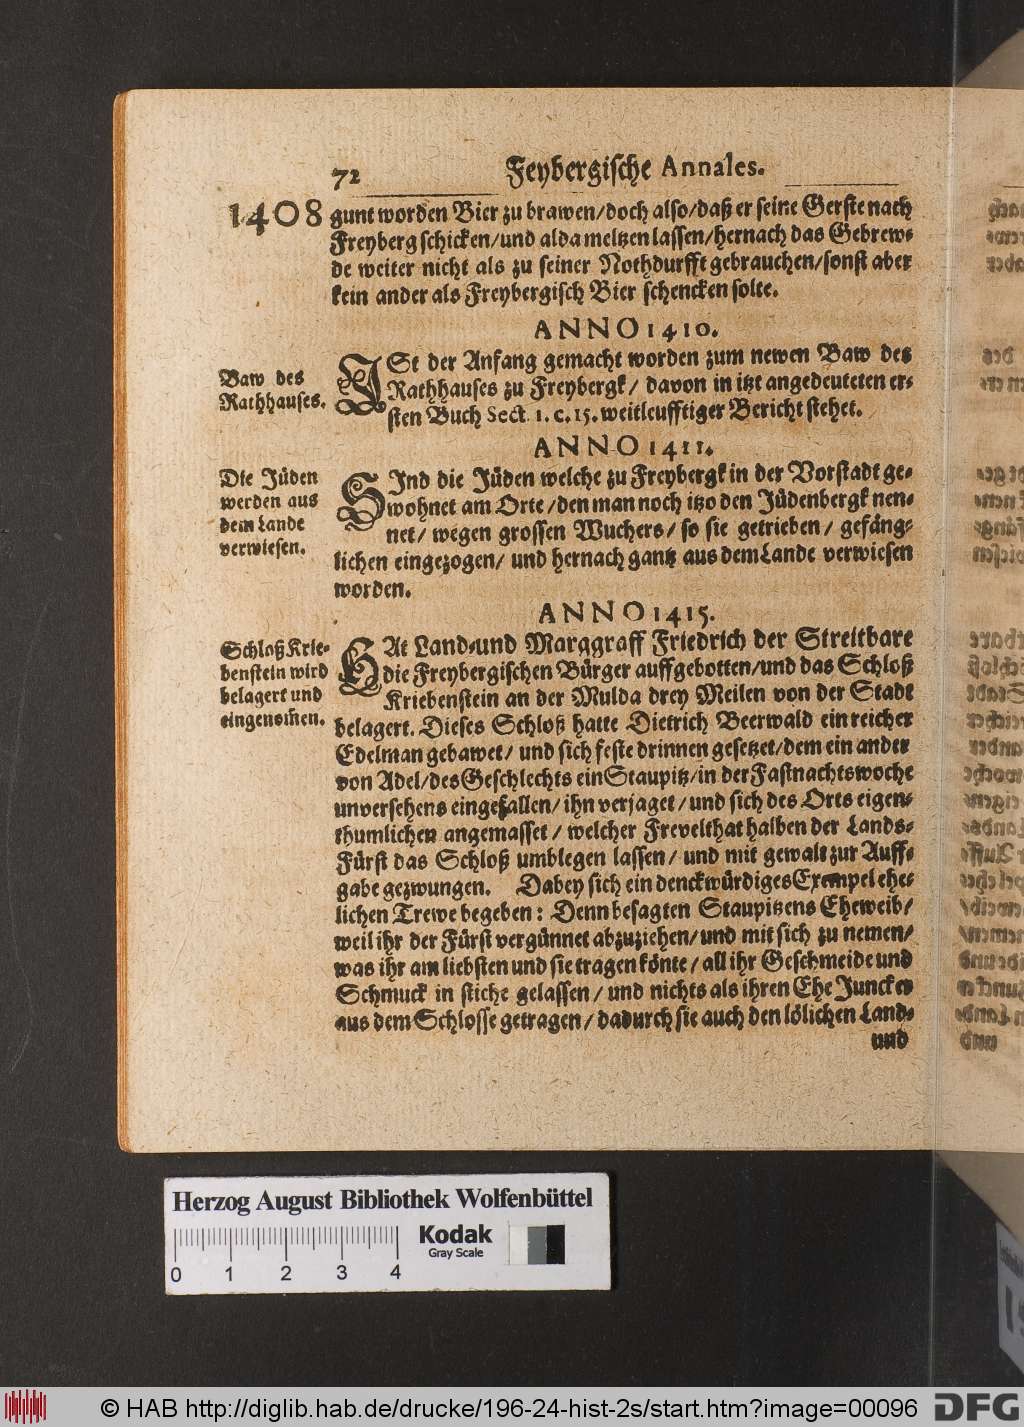 72 Feybergische Annales.
1408 gunt worden Bier zu brawen/doch also/daß er seine Gerste nach
Freyberg schicken/und alda meltzen lassen/hernach das Gebrew⸗
de weiter nicht als zu seiner Nothdurfft gebrauchen/sonst aber
kein ander als Freybergisch Bier schencken solte.
ANNO 1410.
Baw des
Rathhauses.
ISt der Anfang gemacht worden zum newen Baw des
Rathhauses zu Freybergk/ davon in itzt angedeuteten er⸗
sten Buch Sect. 1. c. 15. weitleufftiger Bericht stehet.
ANNO 1411.
Die Jüden
werden aus
dem Lande
verwiesen.
SInd die Jüden welche zu Freybergk in der Vorstadt ge⸗
wohnet am Orte/den man noch itzo den Jüdenbergk nen⸗
net/ wegen grossen Wuchers/ so sie getrieben/ gefäng⸗
lichen eingezogen/ und hernach gantz aus dem Lande verwiesen
worden.
ANNO 1415.
Schloß Krie⸗
benstein wird
belagert und
eingenom̃en.
HAt Land⸗und Marggraff Friedrich der Streitbare
die Freybergischen Bürger auffgebotten/und das Schloß
Kriebenstein an der Mulda drey Meilen von der Stadt
belagert. Dieses Schloß hatte Dietrich Beerwald ein reicher
Edelman gebawet/ und sich feste drinnen gesetzet/dem ein ander
von Adel/des Geschlechts ein Staupitz/in der Fastnachtswoche
unversehens eingefallen/ ihn verjaget/ und sich des Orts eigen⸗
thumlichen angemasset/ welcher Frevelthat halben der Lands⸗
Fürst das Schloß umblegen lassen/ und mit gewalt zur Auff⸗
gabe gezwungen. Dabey sich ein denckwürdiges Exempel ehe⸗
lichen Trewe begeben: Denn besagten Staupitzens Eheweib/
weil ihr der Fürst vergünnet abzuziehen/und mit sich zu nemen/
was ihr am liebsten und sie tragen könte/ all ihr Geschmeide und
Schmuck in stiche gelassen/ und nichts als ihren Ehe Juncker
aus dem Schlosse getragen/ dadurch sie auch den lölichen Land⸗
und
Herzog August Bibliothek Wolfenbüttel
Kodak
Gray Scale
0 1 2 3 4
© HAB http://diglib.hab.de/drucke/196-24-hist-2s/start.htm?image=00096 DFG